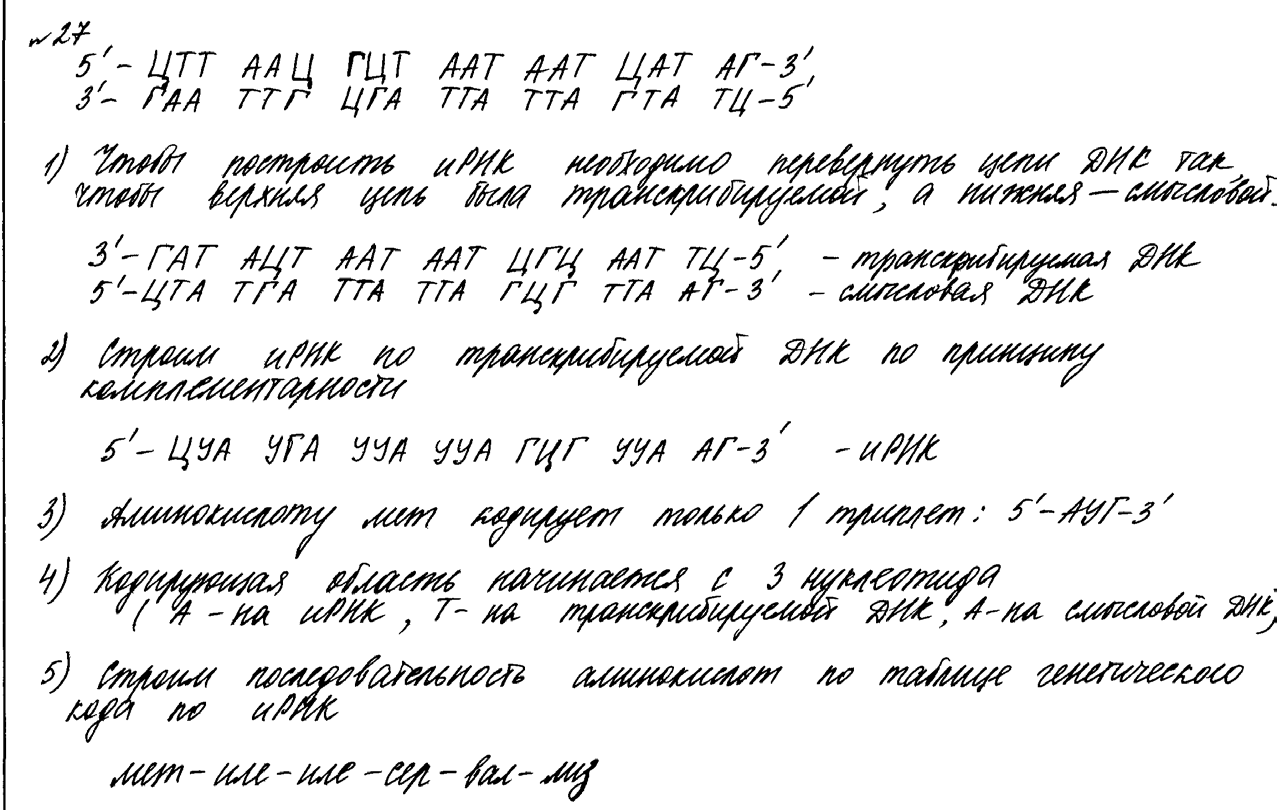 №27
5'- ЦТТ ААЦ ГЦТ ААТ ААТ ЦАТ АГ-3'
3'- ГАА ТТГ ЦГА ТТА ТТА ГТА ТЦ-5'
1) Чтобы построить иРНК необходимо перевернуть цепи ДНК так,
чтобы верхняя цепь была транскрибируемой, а нижняя — смысловой.
3'-ГАТ АЦТ ААТ ААТ ЦГЦ ААТ ТЦ-5' - транскрибируемая ДНК
5'-ЦТА ТГА ТТА ТТА ГЦГ ТТА АГ-3' - смысловая ДНК
2) Строим иРНК по транскрибируемой ДНК по принципу
комплементарности
5'- ЦУА УГА УУА УУА ГЦГ УУА АГ-3' - иРНК
3) Аминокислоту мет кодирует только 1 триплет: 5'-АУГ-3'
4) Кодирующая область начинается с 3 нуклеотида
( А - на иРНК , Т- на транскрибируемой ДНК, А-на смысловой ДНК)
5) Строим последовательность аминокислот по таблице генетического
кода по иРНК
мет - иле - иле - сер - вал - лиз